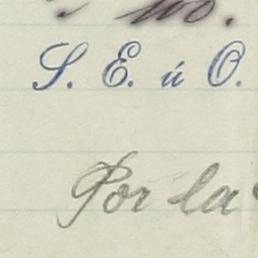 S. E. ú O.
Por la